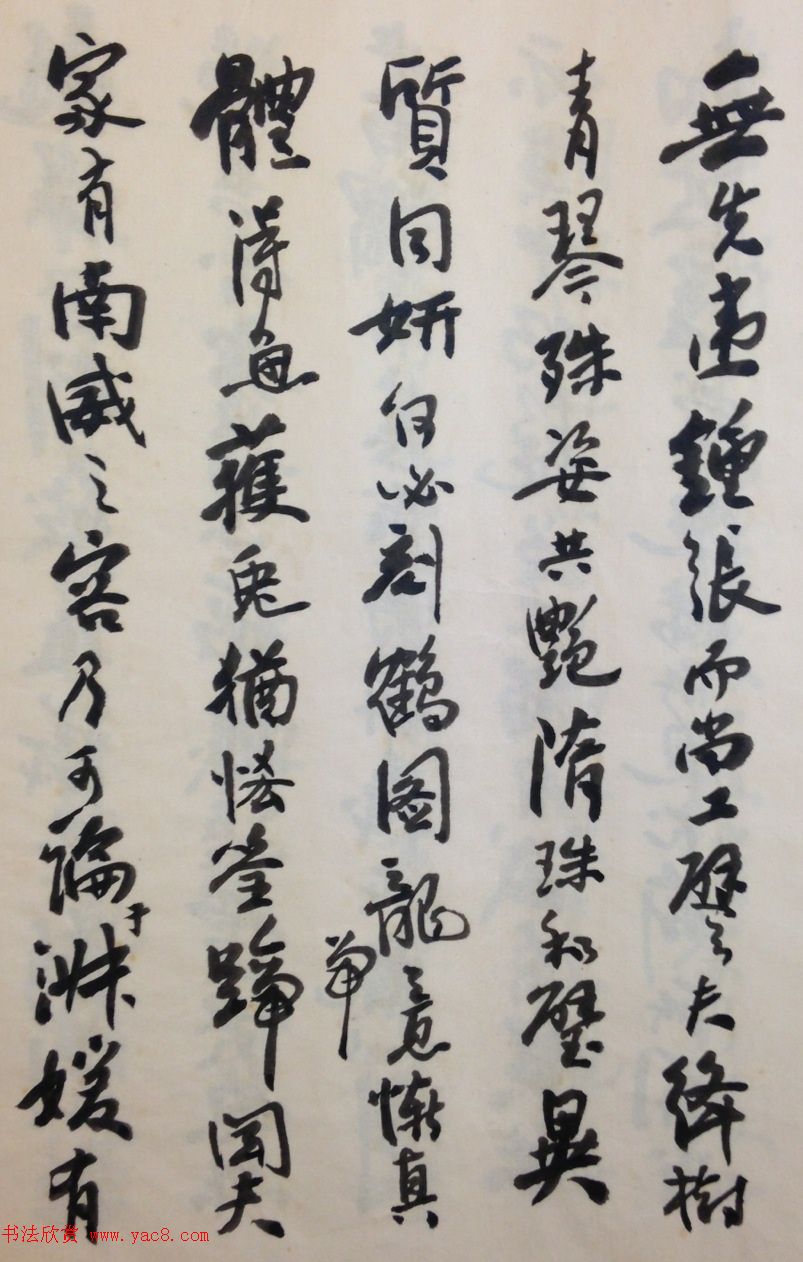 無先違鍾張而尚工譬夫絳樹
青琴殊姿共艷隋珠和璧異
質同妍何必刻鶴圖龍竟慚真
體得魚獲兔猶恡筌蹄聞夫
家有南威之容乃可論於淋媛有
筌
书法欣赏 www.yac8.com